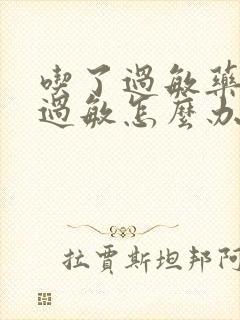 喫了過敏藥
過敏怎麼办
拉賈斯坦邦阿